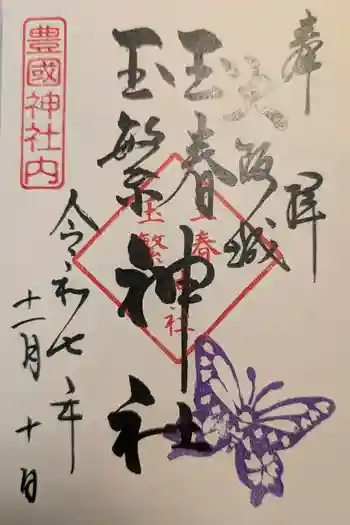 奉拝
大阪城
玉春
玉繁
神社
玉春
玉繁
神社
豊國神社内
令和七年
十一月十日